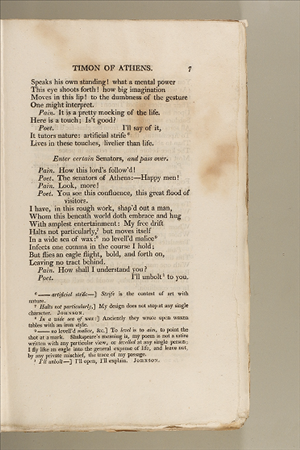 TIMON OF ATHENS. 7
Speaks his own standing! what a mental power
This eye shoots forth! how big imagination
Moves in this lip! to the dumbness of the gesture
One might interpret.
Pain. It is a pretty mocking of the life.
Here is a touch; Is't good?
Poet. I'll say of it,
It tutors nature: artificial strife⁶
Lives in these touches, livelier than life.
Enter certain Senators, and pass over.
Pain. How this lord's follow'd!
Poet. The senators of Athens:—Happy men!
Pain. Look, more!
Poet. You see this confluence, this great flood of
visitors.
I have, in this rough work, shap'd out a man,
Whom this beneath world doth embrace and hug
With amplest entertainment: My free drift
Halts not particularly,⁷ but moves itself
In a wide sea of wax:⁸ no levell'd malice⁹
Infects one comma in the course I hold;
But flies an eagle flight, bold, and forth on,
Leaving no tract behind.
Pain. How shall I understand you?
Poet. I'll unbolt¹ to you.
⁶ —— artificial strife—] Strife is the contest of art with
nature.
⁷ Halts not particularly,] My design does not stop at any single
character. JOHNSON.
⁸ In a wide sea of wax:] Anciently they wrote upon waxen
tables with an iron style.
⁹ —— no levell'd malice, &c.] To level is to aim, to point the
shot at a mark. Shakspeare's meaning is, my poem is not a satire
written with any particular view, or levelled at any single person;
I fly like an eagle into the general expanse of life, and leave not,
by any private mischief, the trace of my passage.
¹ I'll unbolt—] I'll open, I'll explain. JOHNSON.